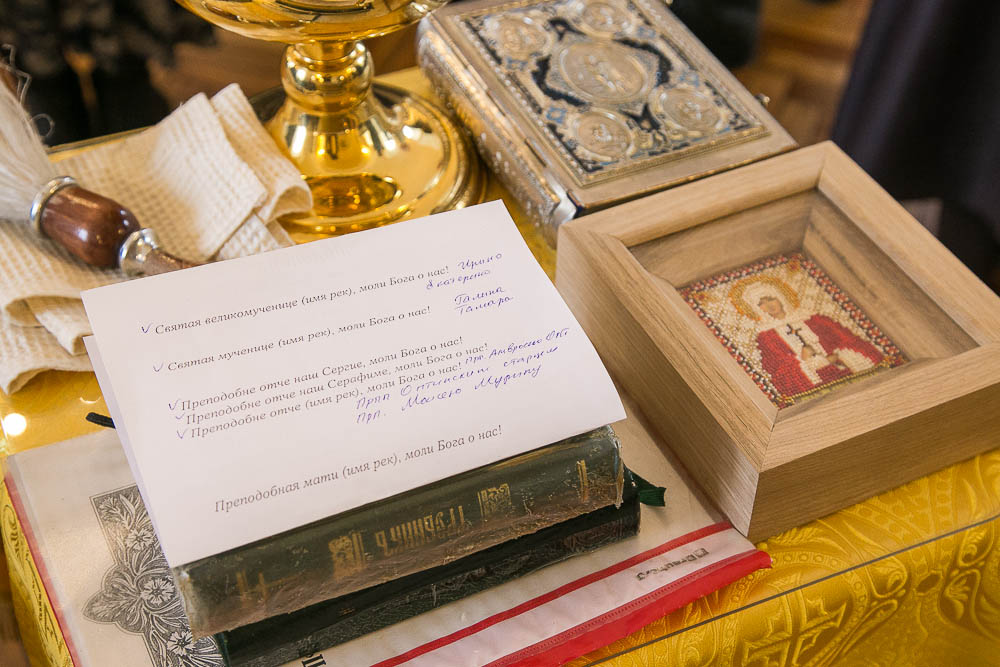 ✓ Святая великомученице (имя рек), моли Бога о нас! Ирино
Екатерино
✓ Святая мученице (имя рек), моли Бога о нас! Галина
Тамара
✓ Преподобне отче наш Сергие, моли Бога о нас!
✓ Преподобне отче наш Серафиме, моли Бога о нас!
✓ Преподобне отче (имя рек), моли Бога о нас! Прп. Амвросие Опт
Прпп Оптинским старцам
Прп. Моисею Мурину
Преподобная мати (имя рек), моли Бога о нас!
ТРЕБНИКЪ